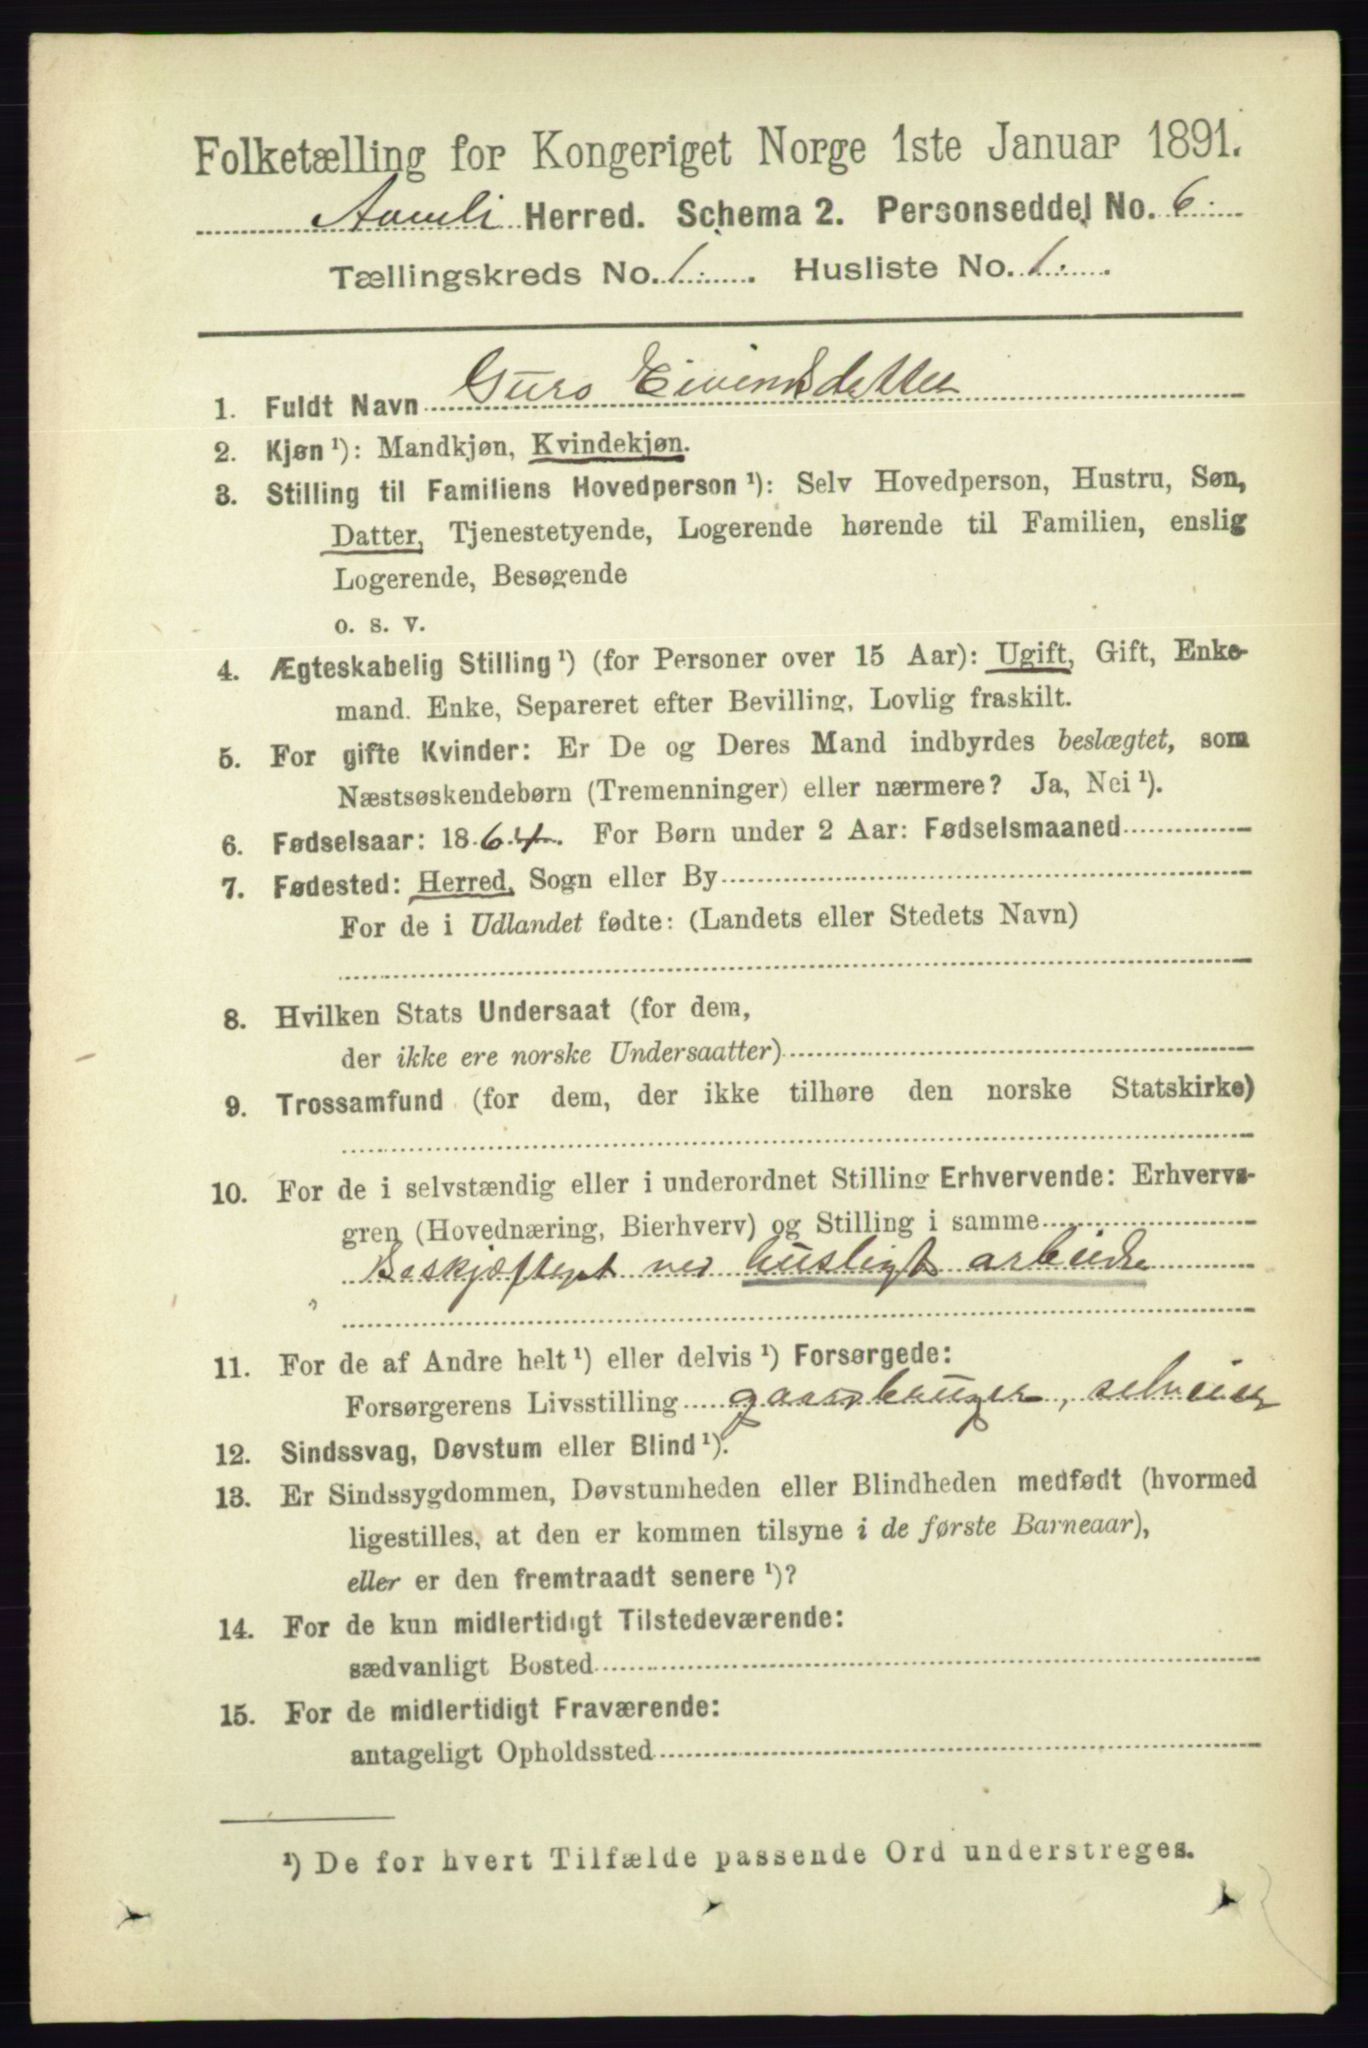 Folketælling for Kongeriget Norge 1ste Januar 1891.
Aamli Herred. Schema 2. Personseddel No. 6.
Tællingskreds No. 1. Husliste No. 1.
1. Fuldt Navn Guro Eivindsdatter
2. Kjøn ¹): Mandkjøn, Kvindekjøn.
3. Stilling til Familiens Hovedperson ¹): Selv Hovedperson, Hustru, Søn,
Datter, Tjenestetyende, Logerende hørende til Familien, enslig
Logerende, Besøgende
o. s. v.
4. Ægteskabelig Stilling ¹) (for Personer over 15 Aar): Ugift, Gift, Enke-
mand. Enke, Separeret efter Bevilling, Lovlig fraskilt.
5. For gifte Kvinder: Er De og Deres Mand indbyrdes beslægtet, som
Næstsøskendebørn (Tremenninger) eller nærmere? Ja, Nei ¹).
6. Fødselsaar: 1864. For Børn under 2 Aar: Fødselsmaaned
7. Fødested: Herred, Sogn eller By
For de i Udlandet fødte: (Landets eller Stedets Navn)
8. Hvilken Stats Undersaat (for dem,
der ikke ere norske Undersaatter)
9. Trossamfund (for dem, der ikke tilhøre den norske Statskirke)
10. For de i selvstændig eller i underordnet Stilling Erhvervende: Erhvervs-
gren (Hovednæring, Bierhverv) og Stilling i samme
Beskjæftiget ved husligt arbeide
11. For de af Andre helt ¹) eller delvis ¹) Forsørgede:
Forsørgerens Livsstilling gaardbruger, selveier
12. Sindssvag, Døvstum eller Blind ¹).
13. Er Sindssygdommen, Døvstumheden eller Blindheden medfødt (hvormed
ligestilles, at den er kommen tilsyne i de første Barneaar),
eller er den fremtraadt senere ¹)?
14. For de kun midlertidigt Tilstedeværende:
sædvanligt Bosted
15. For de midlertidigt Fraværende:
antageligt Opholdssted
¹) De for hvert Tilfælde passende Ord understreges.